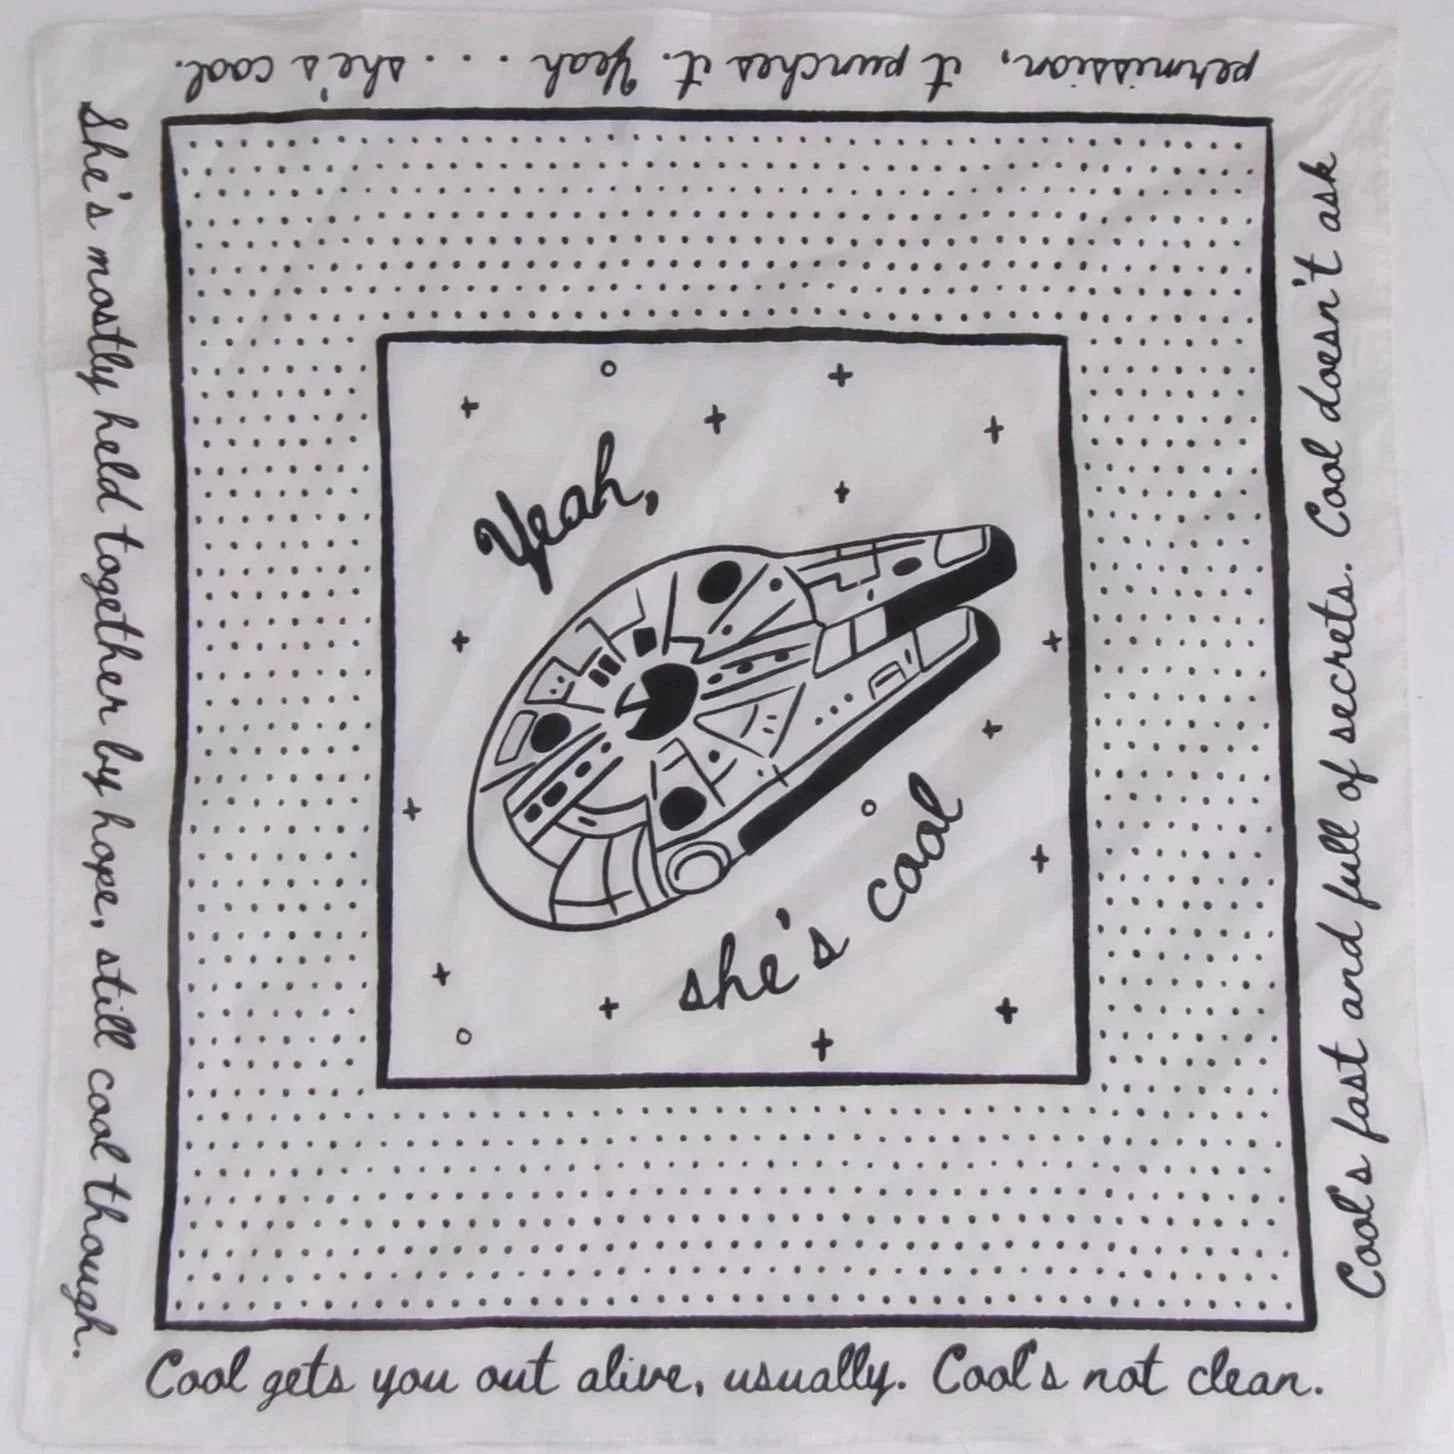 She's mostly held together by hope, still cool though.
Cool gets you out alive, usually. Cool's not clean.
Cool's fast and full of secrets. Cool doesn't ask
permission, it punches it. Yeah . . . she's cool.
Yeah,
she's cool